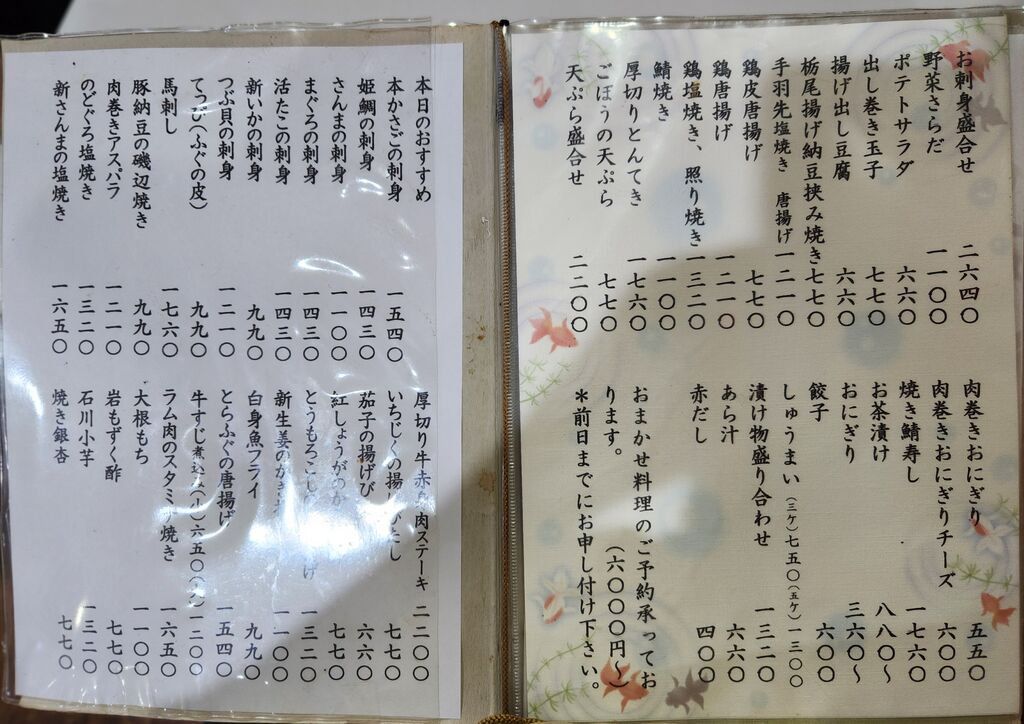 お刺身盛合せ 二六四〇
野菜さらだ 一一〇〇
ポテトサラダ 六六〇
出し巻き玉子 七七〇
揚げ出し豆腐 六六〇
栃尾揚げ納豆挟み焼き 七七〇
手羽先塩焼き 唐揚げ 一二一〇
鶏皮唐揚げ 七七〇
鶏唐揚げ 一二一〇
鶏塩焼き、照り焼き 一三二〇
鯖焼き 一一〇〇
厚切りとんてき 一七六〇
ごぼうの天ぷら 七七〇
天ぷら盛合せ 二二〇〇
肉巻きおにぎり 五五〇
肉巻きおにぎりチーズ 六〇〇
焼き鯖寿し 一七六〇
お茶漬け 八八〇〜
おにぎり 三六〇〜
餃子 六〇〇
しゅうまい(三ケ)七五〇(五ケ)一三〇〇
漬け物盛り合わせ 一三二〇
あら汁 六六〇
赤だし 四〇〇
おまかせ料理のご予約承っております。 (六〇〇〇円〜)
*前日までにお申し付け下さい。
本日のおすすめ
本かさごの刺身 一五四〇
姫鯛の刺身 一四三〇
さんまの刺身 一一〇〇
まぐろの刺身 一四三〇
活たこの刺身 一四三〇
新いかの刺身 九九〇
つぶ貝の刺身 一二一〇
てっぴ(ふぐの皮) 九九〇
馬刺し 一七六〇
豚納豆の磯辺焼き 九九〇
肉巻きアスパラ 一二一〇
のどぐろ塩焼き 一三二〇
新さんまの塩焼き 一六五〇
厚切り牛赤身肉ステーキ 二二〇〇
いちじくの揚げびたし 七七〇
茄子の揚げび 六六〇
紅しょうがのか 七七〇
とうもろこし 一三二〇
新生姜のかき 一一〇〇
白身魚フライ 九九〇
とらふぐの唐揚げ 一五四〇
牛すじ煮込み(小)六五〇(大)一二〇〇
ラム肉のスタミナ焼き 一六五〇
大根もち 一一〇〇
岩もずく酢 七七〇
石川小芋 一三二〇
焼き銀杏 七七〇